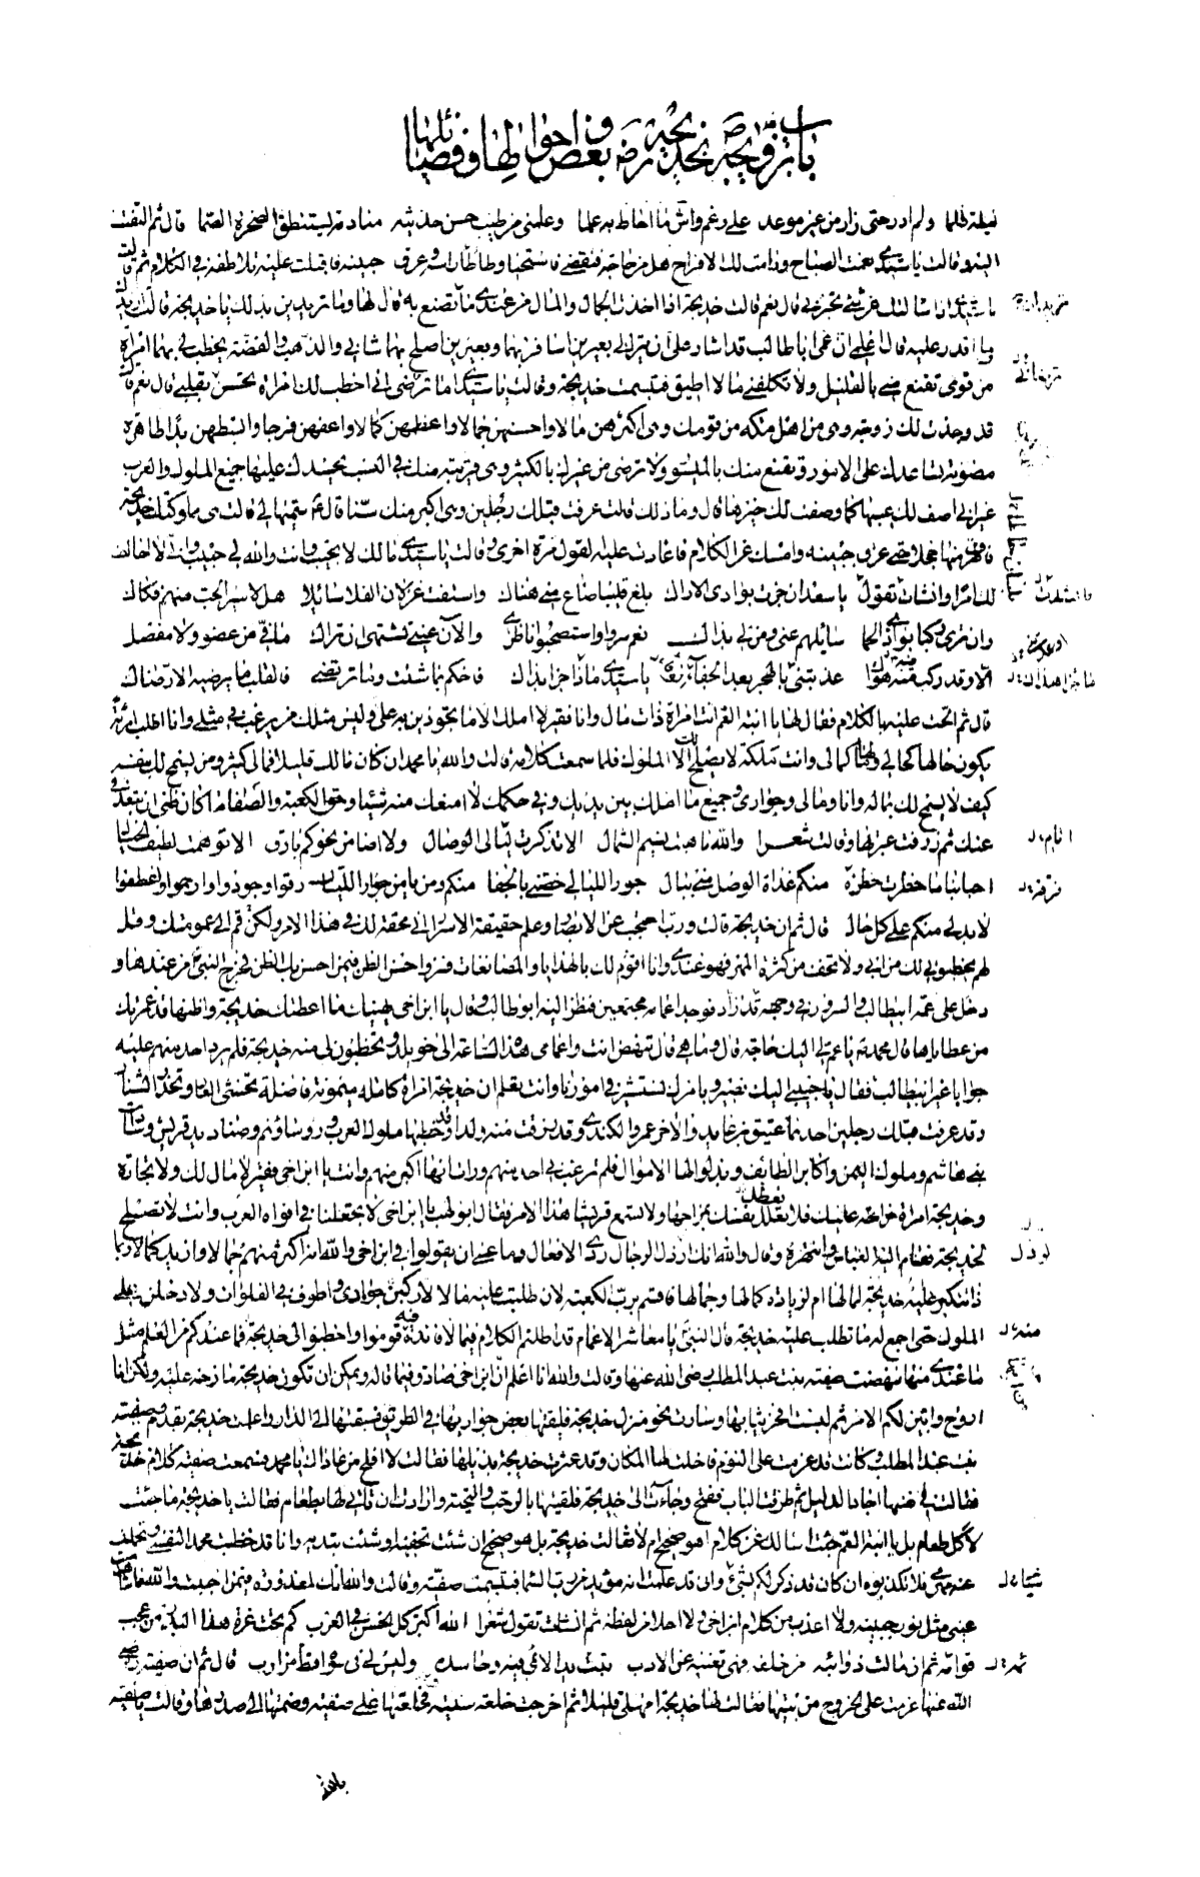 باب تزوجه ص بخديجة رض وفضائلها وبعض احوالها
قبلة فلما ولم ادر حتى زار من غير موعد على رغم واش ما احاط به علما وعلمنى من طيب حسن حديثه منادمة ليستنطق الصخرة الصما قال ثم التفت
اليه وقالت يا سيدى نعمت الصباح ودامت لك الافراح هل من حاجة فتقضى فاستحيا وطاطا راسه وعرق جبينه فاقبلت عليه تلاطفه فى الكلام ثم قالت
يا سيدى اذا سالتك عن شئ تخبرنى قال نعم قالت خديجة اذا اخذت الجمال والمال من عندى ما تصنع به قال لها وما تريدين بذلك يا خديجة قالت
ما اقدر عليه قال اعلمى ان عمى ابا طالب قد اشار على ان يترك لى بعيرين اسافر بهما وبعيرين اصلح بهما شانى والذهب والفضة يخطب لى بهما امراة
من قومى تقنع منى بالقليل ولا تكلفنى ما لا اطيق فتبسمت خديجة وقالت يا سيدى اما ترضى انى اخطب لك امراة تحسن بقلبى قال نعم قالت
قد وجدت لك زوجة وهى من اهل مكة من قومك وهى اكثرهن مالا واحسنهن جمالا واعظمهن كمالا واعفهن فرجا وابسطهن يدا طاهرة
مصونة تساعدك على الامور وتقنع منك بالميسور ولا ترضى من غيرك بالكثير وهى قريبة منك فى النسب يحسدك عليها جميع الملوك والعرب
غير انى اصف لك عيبها كما وصفت لك خيرها قال وما ذلك قالت عرفت قبلك رجلين وهى اكبر منك سنا قال ع سميها لى قالت هى مملوكتك خديجة
فاطرق منها خجلا حتى عرق جبينه وامسك عن الكلام فاعادت عليه القول مرة اخرى وقالت يا سيدى ما لك لا تجيب وانت والله لى حبيب وانى لا اخالف
لك امرا وانشات تقول يا سعد ان جزت بوادى الاراك بلغ قليبا ضاع منى هناك واستفت غزلان الفلا سائلا هل لاسير الحب منهم فكاك
وان ترى ركبا بوادى الحما سايلهم عنى ومن لى بذاك نعم سروا واستصحبوا ناظرى والآن عينى تشتهى ان تراك ما فى من عضو ولا مفصل
الا وقد ركب فيه هواك عذبتنى بالهجر بعد الجفا يا سيدى ماذا جزا بذاك فاحكم بما شئت وما ترتضى فالقلب ما يرضيه الا رضاك
قال ثم الحت عليه بالكلام فقال لها يا ابنة العم انت امراة ذات مال وانا فقير لا املك الا ما تجودين به على وليس مثلك من يرغب فى مثلى وانا اطلب امراة
يكون حالها كحالى ومالها كمالى وانت ملكة لا يصلح لك الا الملوك فلما سمعت كلامه قالت والله يا محمد ان كان مالك قليلا فمالى كثير ومن يسمح لك بنفسه
كيف لا يسمح لك بماله وانا ومالى وجوارى وجميع ما املك بين يديك وفى حكمك لا امنعك منه شيئا وحق الكعبة والصفا ما كان ظنى ان تبعدنى
عنك ثم ذرفت عبرتها وقالت شعرا والله ما هب نسيم الشمال الا تذكرت ليالى الوصال ولا اضا من نحوكم بارق الا توهمت لطيف الخيال
احبابنا ما خطرت خطرة منكم غداة الوصل منى ببال جور الليالى خصنى بالجفا منكم ومن يامن جور الليال رقوا وجودوا وارحموا واعطفوا
لا بد لى منكم على كل حال قال ثم ان خديجة قالت ورب احتجب عن الابصار وعلم حقيقة الاسرار انى محقة لك فى هذا الامر ولكن قم الى عمومتك وقل
لهم يخطبونى لك من ابى ولا تخف من كثرة المهر فهو عندى وانا اقوم لك بالهدايا والمصانعات فسر واحسن الظن فيمن احسن بك الظن فخرج النبى ص من عندها و
دخل على عمه ابيطالب والسرور فى وجهه قد زاد فوجد اعمامه مجتمعين فنظر اليه ابو طالب وقال يا ابن اخى يهنيك ما اعطتك خديجة واظنها قد غمرتك
من عطاياها قال محمد ص يا عم لى اليك حاجة قال وما هى قال تنهض انت واعمامى هذه الساعة الى خويلد وتخطبون لى منه خديجة فلم يرد احد منهم عليه
جوابا غير ابيطالب فقال يا حبيبى اليك نصير وبامرك نستشير فى امورنا وانت تعلم ان خديجة امراة كاملة ميمونة فاضلة تخشى العار وتحذر الشنار
وقد عرفت قبلك رجلين احدهما عتيق بن عايذ والاخر عمرو الكندى وقد رزقت منه ولدا وخطبها ملوك العرب ورؤساؤهم وصناديد قريش وسادات
بنى هاشم وملوك اليمن واكابر الطائف وبذلوا لها الاموال فلم ترغب فى احد منهم ورات انها اكبر منهم وانت يا ابن اخى فقير لا مال لك ولا تجارة
وخديجة امراة مزاحة عليك فلا تعلل نفسك بمزاحها ولا تسمع قريشا هذا الامر فقال ابو لهب يا ابن اخى لا تجعلنا فى افواه العرب وانت لا تصلح
لخديجة فقام اليه العباس وانتهره وقال والله انك لرذل الرجال ردى الافعال وما عسى ان يقولوا فى ابن اخى والله انه اكثر منهم جمالا وازيد كمالا وبما
ذا تتكبر عليه خديجة لمالها ام لزيادة كمالها وجمالها فاقسم برب الكعبة لان طلبت عليه مالا لاركبن جوادى واطوف فى الفلوات ولادخلن على
الملوك حتى اجمع له ما تطلب عليه خديجة قال النبى ص يا معاشر الاعمام قد اطلتم الكلام فيما لا فائدة فيه قوموا واخطبوا لى خديجة فما عندكم من العلم مثل
ما عندى منها فنهضت صفية بنت عبد المطلب رضى الله عنها وقالت والله انا اعلم ان ابن اخى صادق فيما قاله ويمكن ان تكون خديجة مازحة عليه ولكن انا
اروح وابين لكم الامر ثم لبست افخر ثيابها وسارت نحو منزل خديجة فلقيها بعض جواريها فى الطريق فسبقتها الى الدار واعلمت خديجة بقدوم صفية
بنت عبد المطلب وكانت قد عزمت على النوم فاخلت لها المكان وقد عثرت خديجة بذيلها فقالت لا افلح من عاداك يا محمد فسمعت صفية كلام خديجة
فقالت فى نفسها اجاد الدليل ثم طرقت الباب ففتح وجاءت الى خديجة فلقيتها بالرحب والتحية وارادت ان تاتى لها بطعام فقالت يا خديجة ما جئت
لاكل طعام بل يا ابنة العم جئت اسالك عن كلام اهو صحيح ام لا فقالت خديجة بل هو صحيح ان شئت تخفيه او شئت تبديه وانا قد خطبت محمدا لنفسى وتحملت
عنه مهرى فلا تكذبوه ان كان قد ذكر لكم شئ وانى قد علمت انه مؤيد من رب السما فتبسمت صفية وقالت والله انك لمعذورة فيمن احببت والله ما شاهدت
عينى مثل نور جبينه ولا اعذب من كلام ابن اخى ولا احلا من لفظه ثم انشات تقول شعرا الله اكبر كل الحسن فى العرب كم تحت غرة هذا البدر من عجب
قوامه ثم ان مالت ذوائبه من خلفه فهى تغنيه عن الادب تبت يد اللائمى فيه وحاسده وليس لى فى سواه قط من ارب قال ثم ان صفية رضى
الله عنها عزمت على الخروج من بيتها فقالت لها خديجة امهلى قليلا ثم اخرجت خلعة سنية فخلعتها على صفية وضمتها الى صدرها وقالت يا صفية
بالله